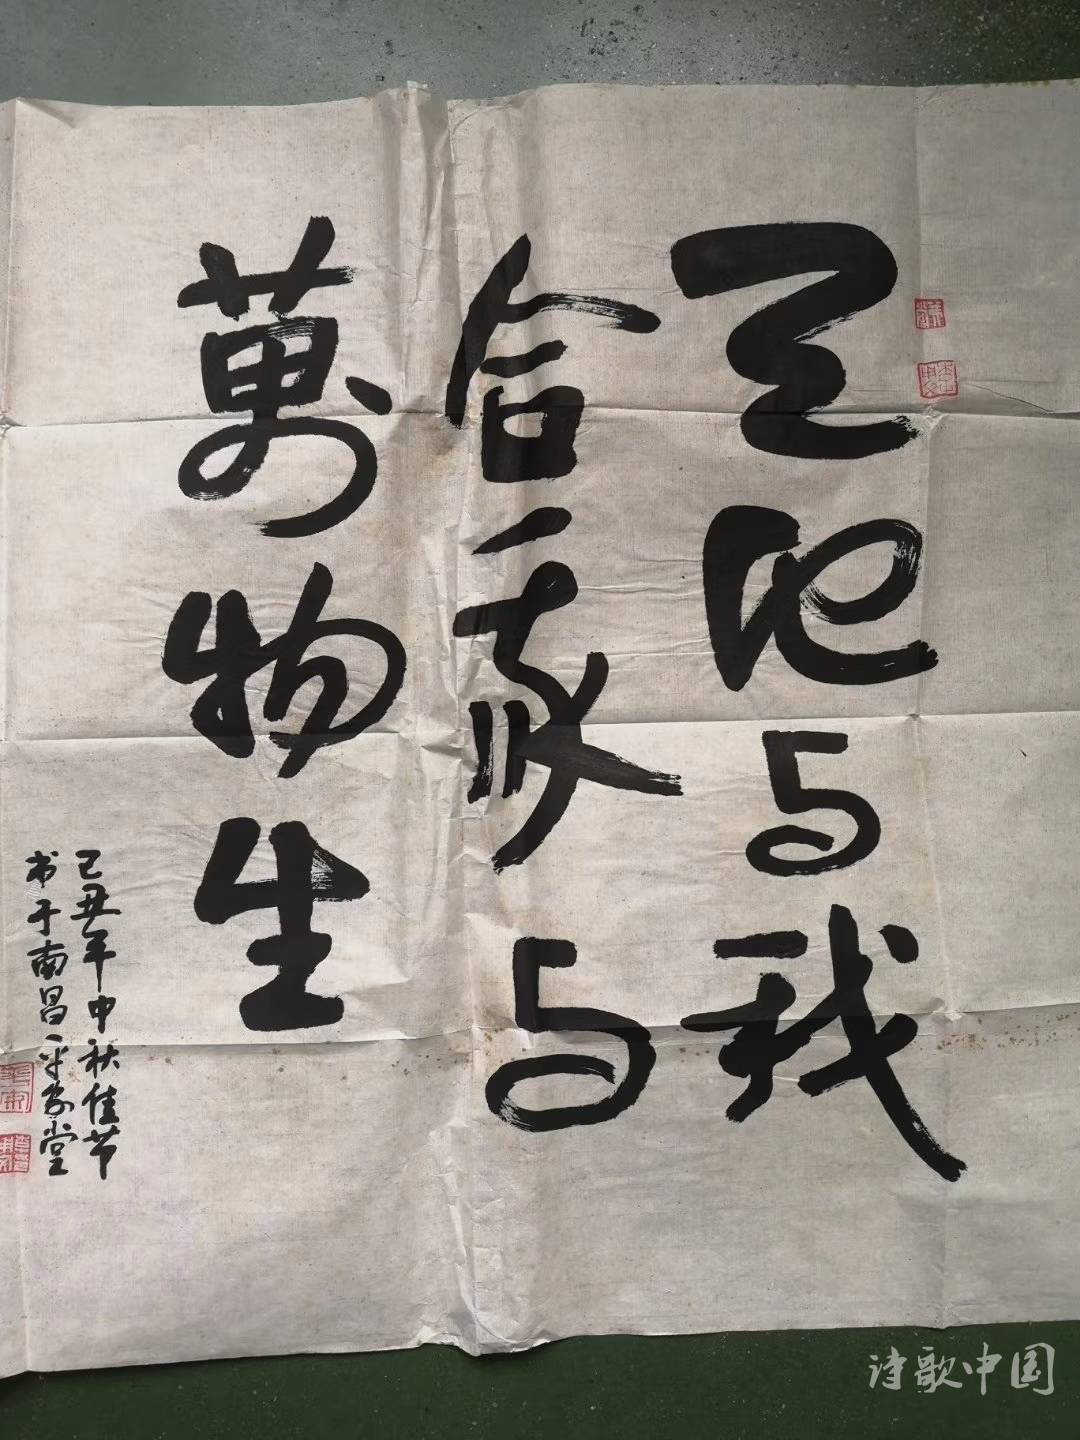 天地与我
合家与
萬物生
己丑年中秋佳节
书于南昌平安堂
诗歌中国